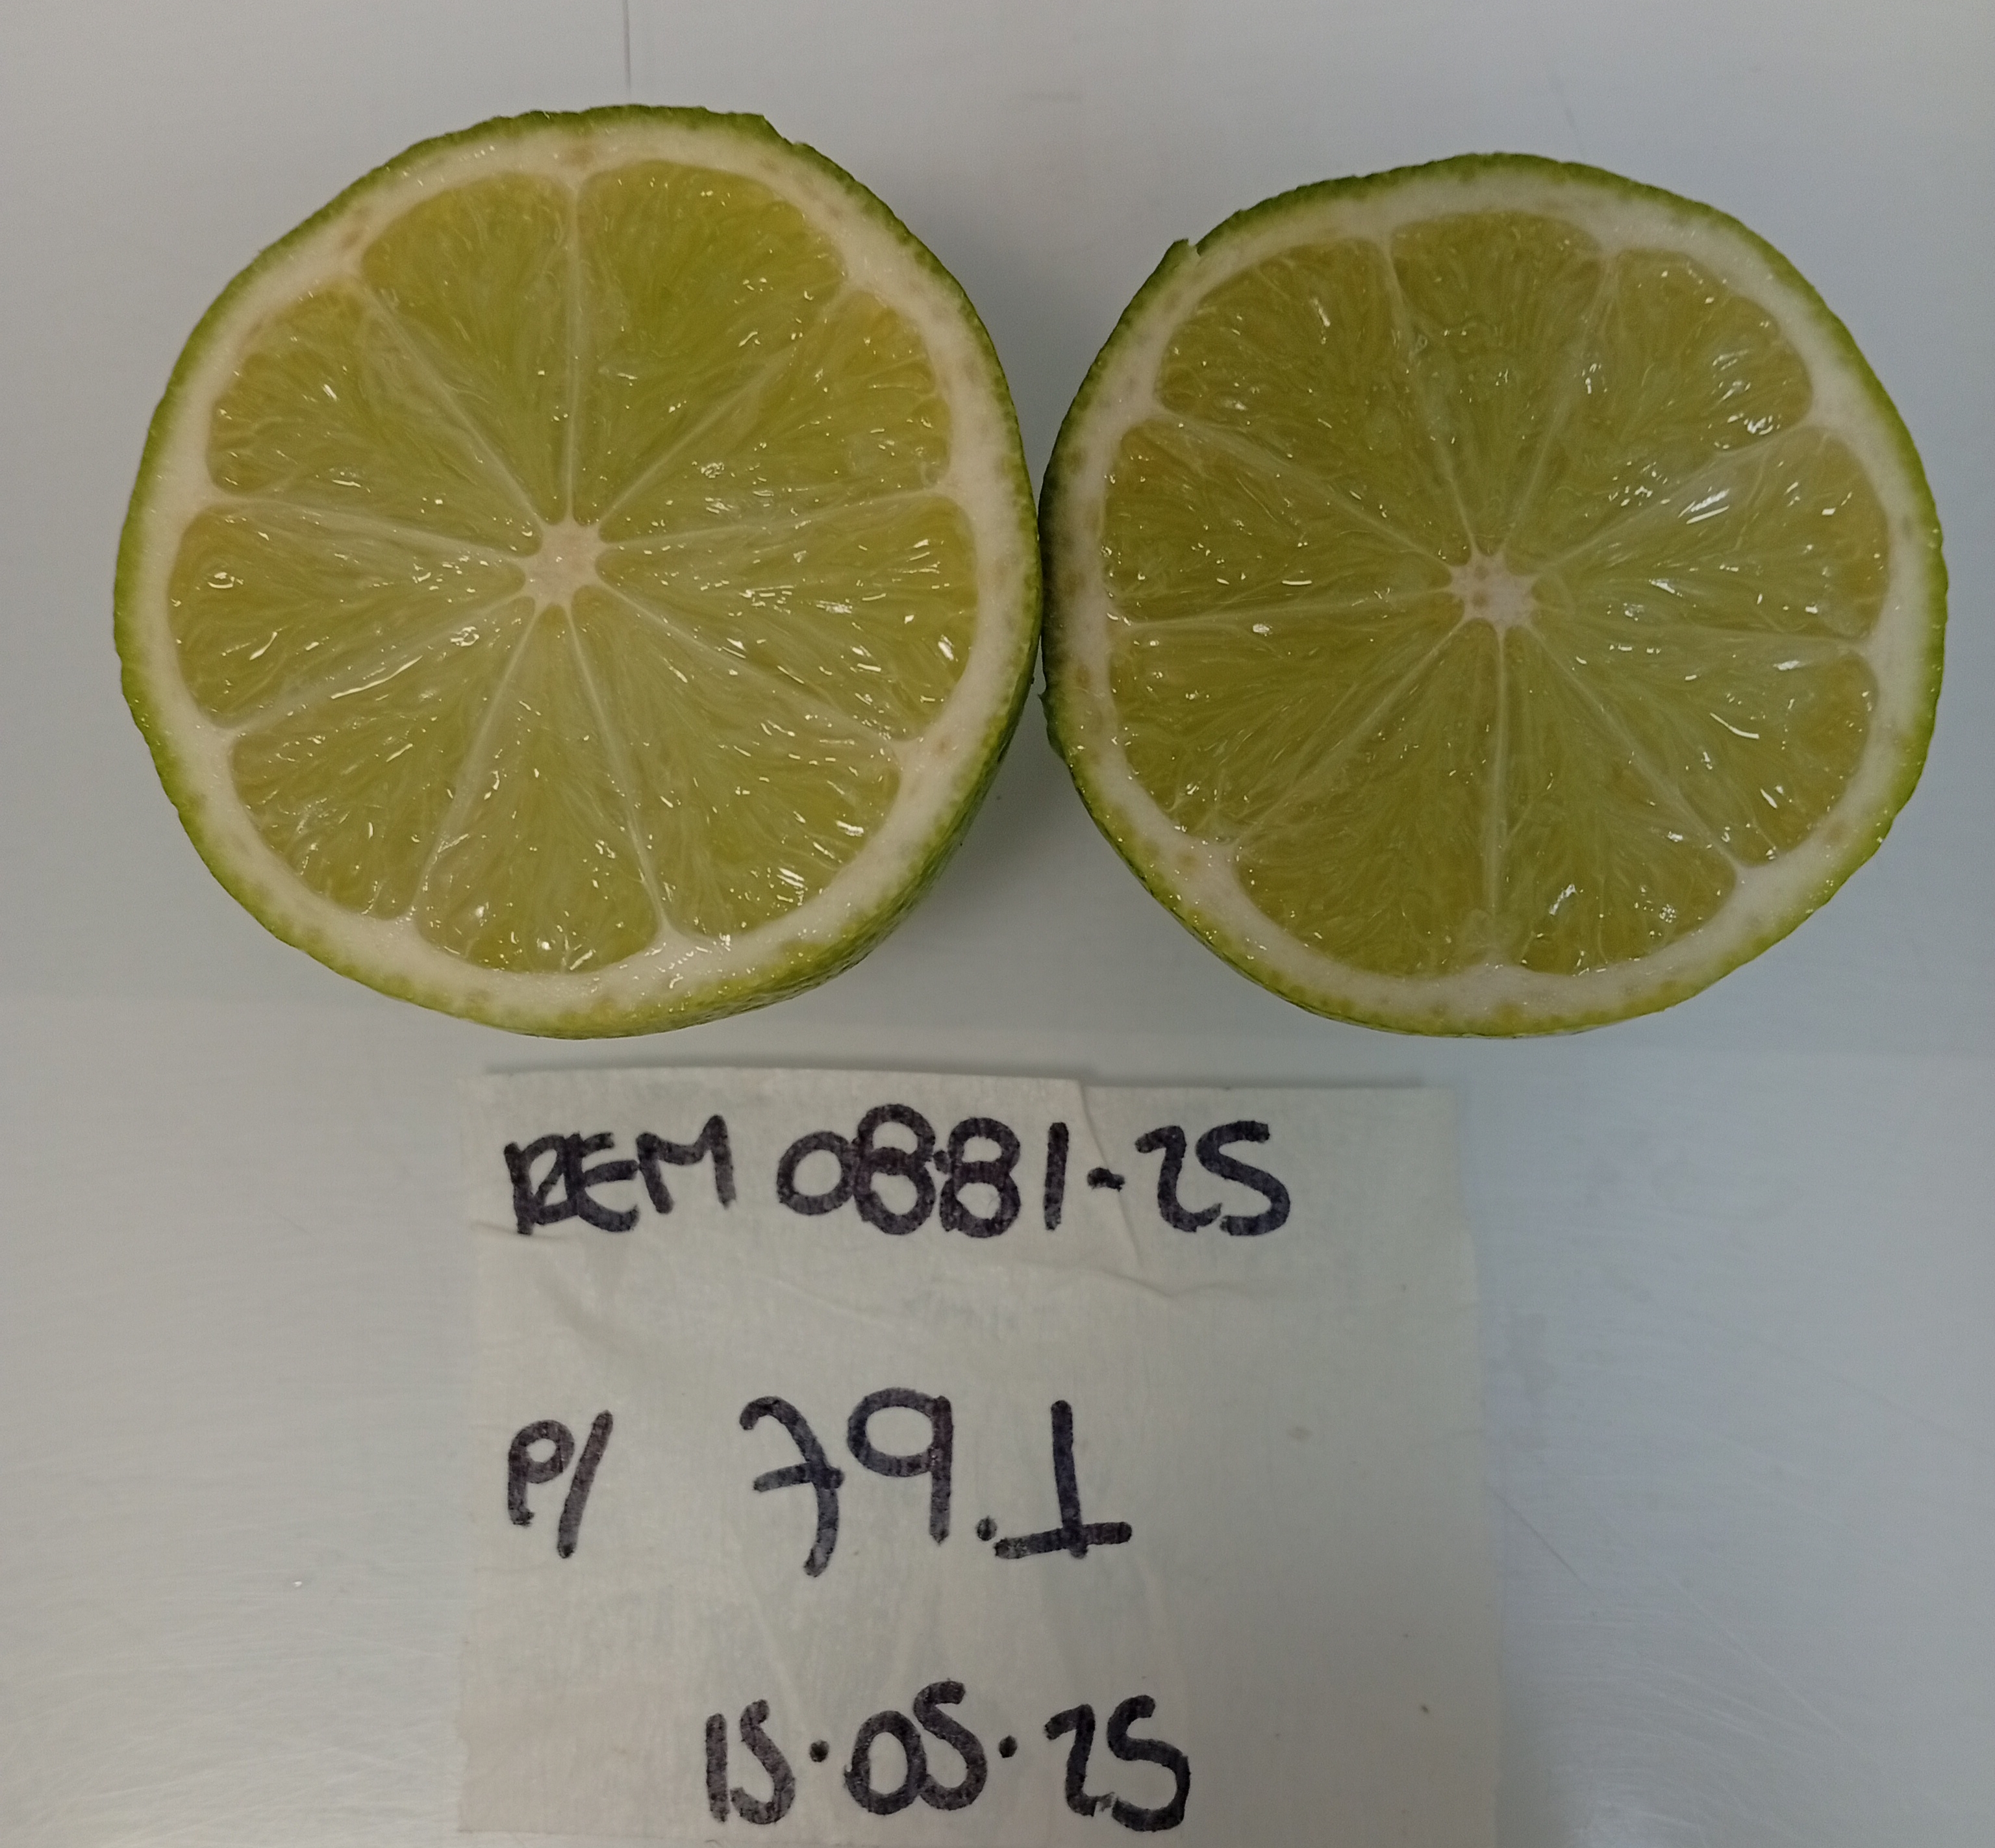 REM 0881-25
P/ 79.1
15.05.25